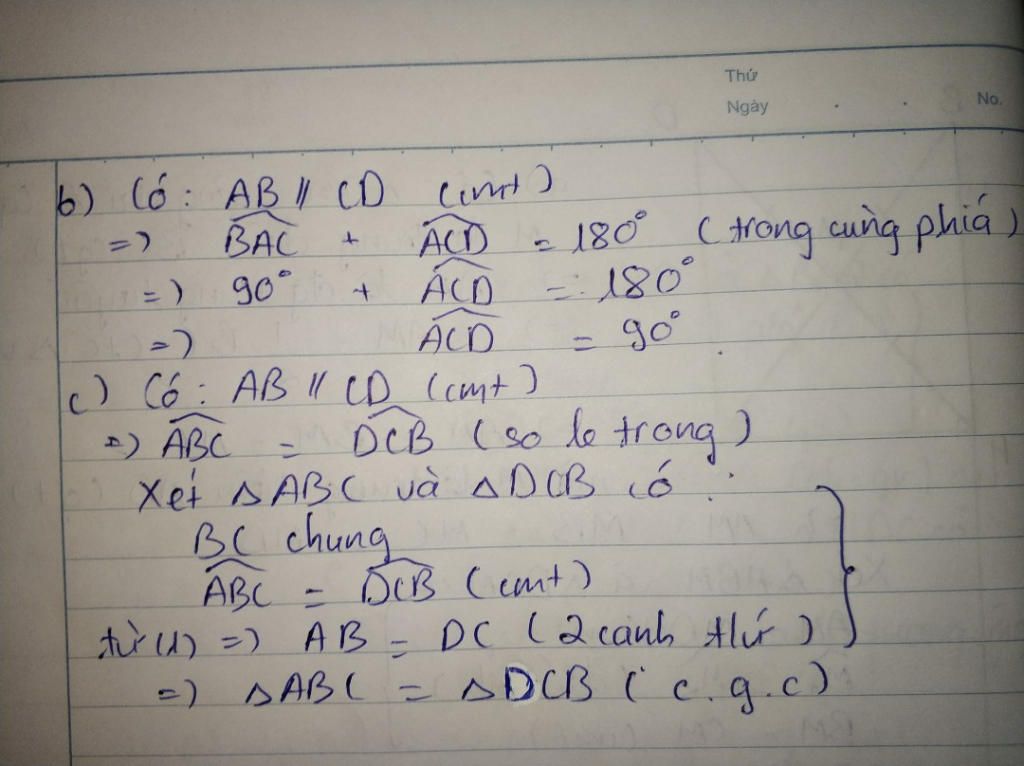 Thứ
Ngày . . No.
b) Có : AB // CD (cmt)
=) BAC + ACD = 180° (trong cùng phía)
=) 90° + ACD = 180°
=) ACD = 90° .
c) Có : AB // CD (cmt)
=) ABC = DCB (so le trong)
Xét △ABC và △DCB có :
BC chung
ABC = DCB (cmt)
từ (1) =) AB = DC (2 cạnh t/ứ)
=) △ABC = △DCB (c.g.c)